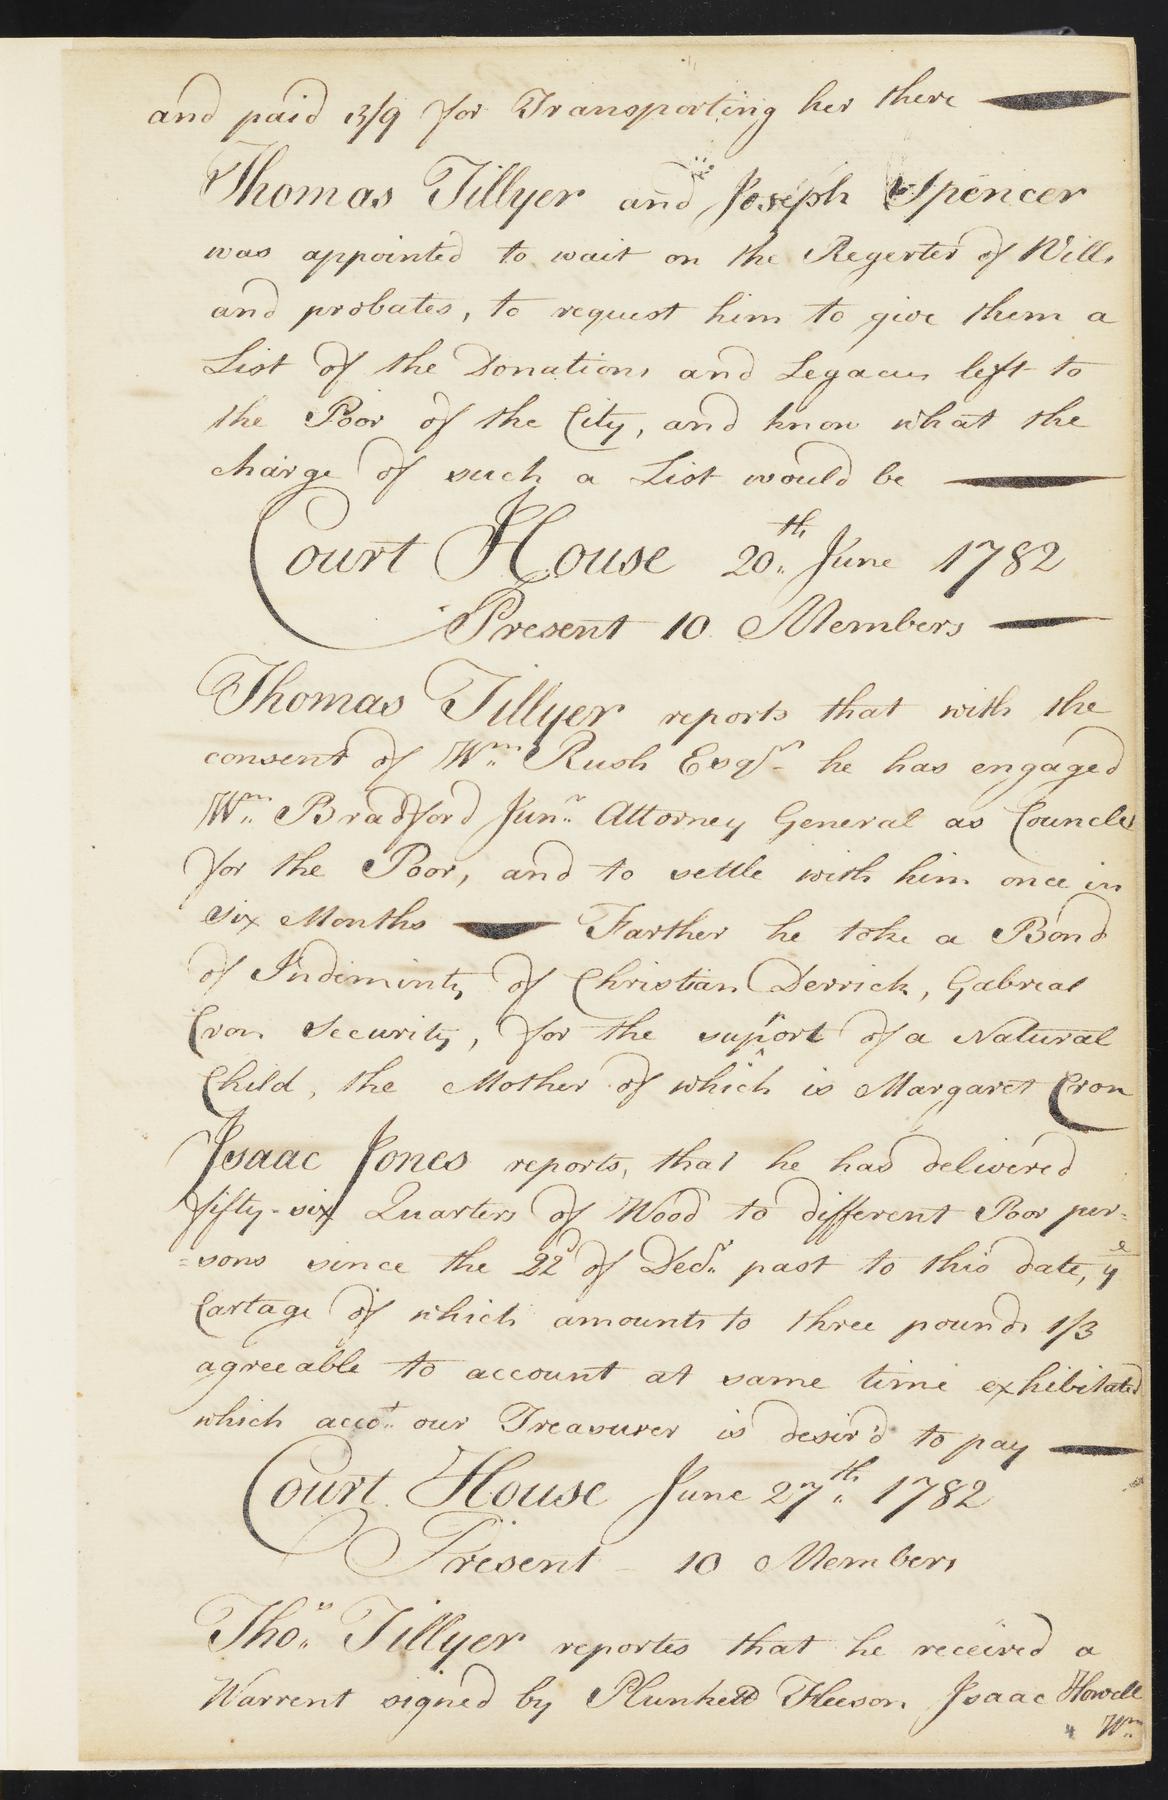 and paid 13/9 for Transporting her there
Thomas Tillyer and Joseph Spencer
was appointed to wait on the Regerter of Wills
and probates, to request him to give them a
List of the Donations and Legacies left to
the Poor of the City, and know what the
charge of such a List would be
Court House 20th June 1782
Present 10 Members
Thomas Tillyer reports that with the
consent of Wm Rush Esqr he has engaged
Wm Bradford Junr Attorney General as Councler
for the Poor, and to settle with him once in
six Months Farther he toke a Bond
of Indiminty of Christian Derrick, Gabreal
Cron Security, for the support of a Natural
Child, the Mother of which is Margaret Cron
Isaac Jones reports, that he had delivered
fifty-six Quarters of Wood to different Poor per=
=sons since the 22d of Decr past to this date, ye
Cartage of which amounts to three pounds 1/3
agreeable to account at same time exhibitated
which accot our Treasurer is desir'd to pay
Court House June 27th 1782
Present 10 Members
Thos Tillyer reportes that he received a
Warrent signed by Plunkett Fleeson Isaac Howell
Wm